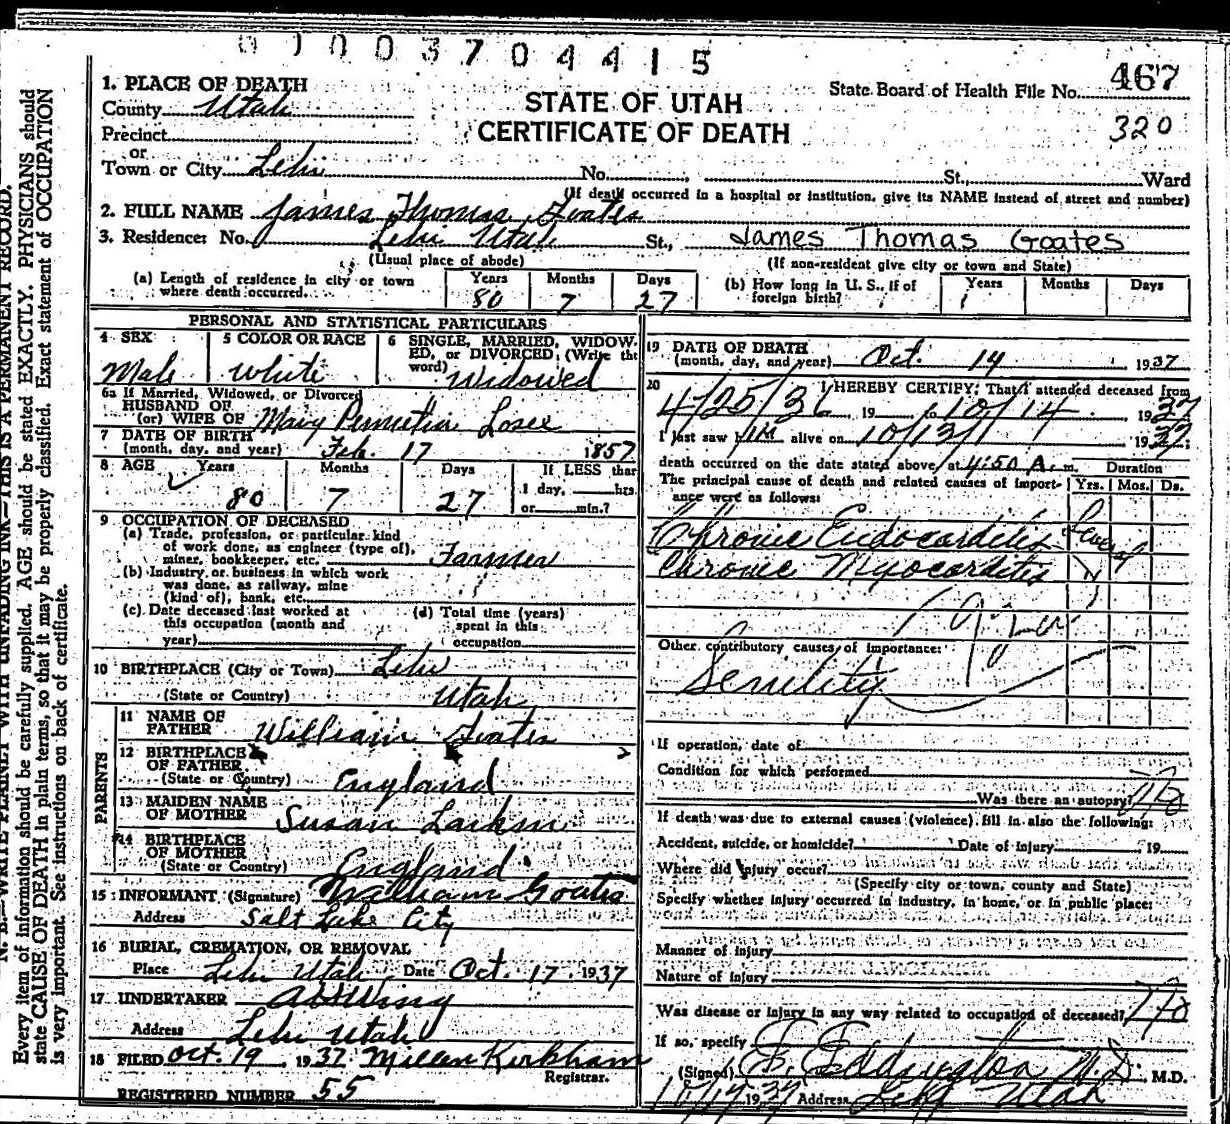 0 1 0 0 3 7 0 4 4 1 5
467
1. PLACE OF DEATH
State Board of Health File No.
County Utah
STATE OF UTAH
CERTIFICATE OF DEATH
320
Precinct
or
Town or City Lehi No. St., Ward
(If death occurred in a hospital or institution, give its NAME instead of street and number)
2. FULL NAME James Thomas Goates
3. Residence: No. Lehi Utah St., James Thomas Goates
(Usual place of abode) (If non-resident give city or town and State)
(a) Length of residence in city or town where death occurred. Years 80 Months 7 Days 27
(b) How long in U. S., if of foreign birth? Years Months Days
PERSONAL AND STATISTICAL PARTICULARS
4 SEX Male
5 COLOR OR RACE White
6 SINGLE, MARRIED, WIDOWED, or DIVORCED, (Write the word) Widowed
6a If Married, Widowed, or Divorced
HUSBAND OF
(or) WIFE OF Mary Losee
7 DATE OF BIRTH
(month, day, and year) Feb. 17 1857
8 AGE Years 80 Months 7 Days 27 If LESS than 1 day, hrs. or min.?
9 OCCUPATION OF DECEASED
(a) Trade, profession, or particular kind
of work done, as engineer (type of),
miner, bookkeeper, etc. Farmer
(b) Industry or business in which work
was done, as railway, mine
(kind of), bank, etc.
(c) Date deceased last worked at
this occupation (month and
year)
(d) Total time (years)
spent in this
occupation
10 BIRTHPLACE (City or Town) Lehi
(State or Country) Utah
PARENTS
11 NAME OF
FATHER William Goates
12 BIRTHPLACE
OF FATHER
(State or Country) England
13 MAIDEN NAME
OF MOTHER Susan Larkin
14 BIRTHPLACE
OF MOTHER
(State or Country) England
15 INFORMANT (Signature) William Goates
Address Salt Lake City
16 BURIAL, CREMATION, OR REMOVAL
Place Lehi Utah Date Oct. 17 1937
17 UNDERTAKER Wing
Address Lehi Utah
18 FILED Oct. 19, 1937 Kirkham
Registrar.
REGISTERED NUMBER 55
19 DATE OF DEATH
(month, day, and year) Oct. 14 1937
20 I HEREBY CERTIFY, That I attended deceased from
4/25/36 19 to 10/14 1937
I last saw him alive on 10/13/ 1937;
death occurred on the date stated above, at 4:50 A. m. Duration
The principal cause of death and related causes of importance were as follows: Yrs. Mos. Ds.
Chronic Endocarditis Several
Chronic Myocarditis "
Other contributory causes of importance:
Senility
If operation, date of
Condition for which performed
Was there an autopsy? No
If death was due to external causes (violence) fill in also the following:
Accident, suicide, or homicide? Date of injury 19
Where did injury occur?
(Specify city or town, county and State)
Specify whether injury occurred in industry, in home, or in public place:
Manner of injury
Nature of injury
Was disease or injury in any way related to occupation of deceased? No
If so, specify
(Signed) Eddington M.D. M.D.
1937 Address Lehi Utah
N. B.—WRITE PLAINLY WITH UNFADING INK—THIS IS A PERMANENT RECORD.
Every item of information should be carefully supplied. AGE should be stated EXACTLY. PHYSICIANS should
state CAUSE OF DEATH in plain terms, so that it may be properly classified. Exact statement of OCCUPATION
is very important. See instructions on back of certificate.